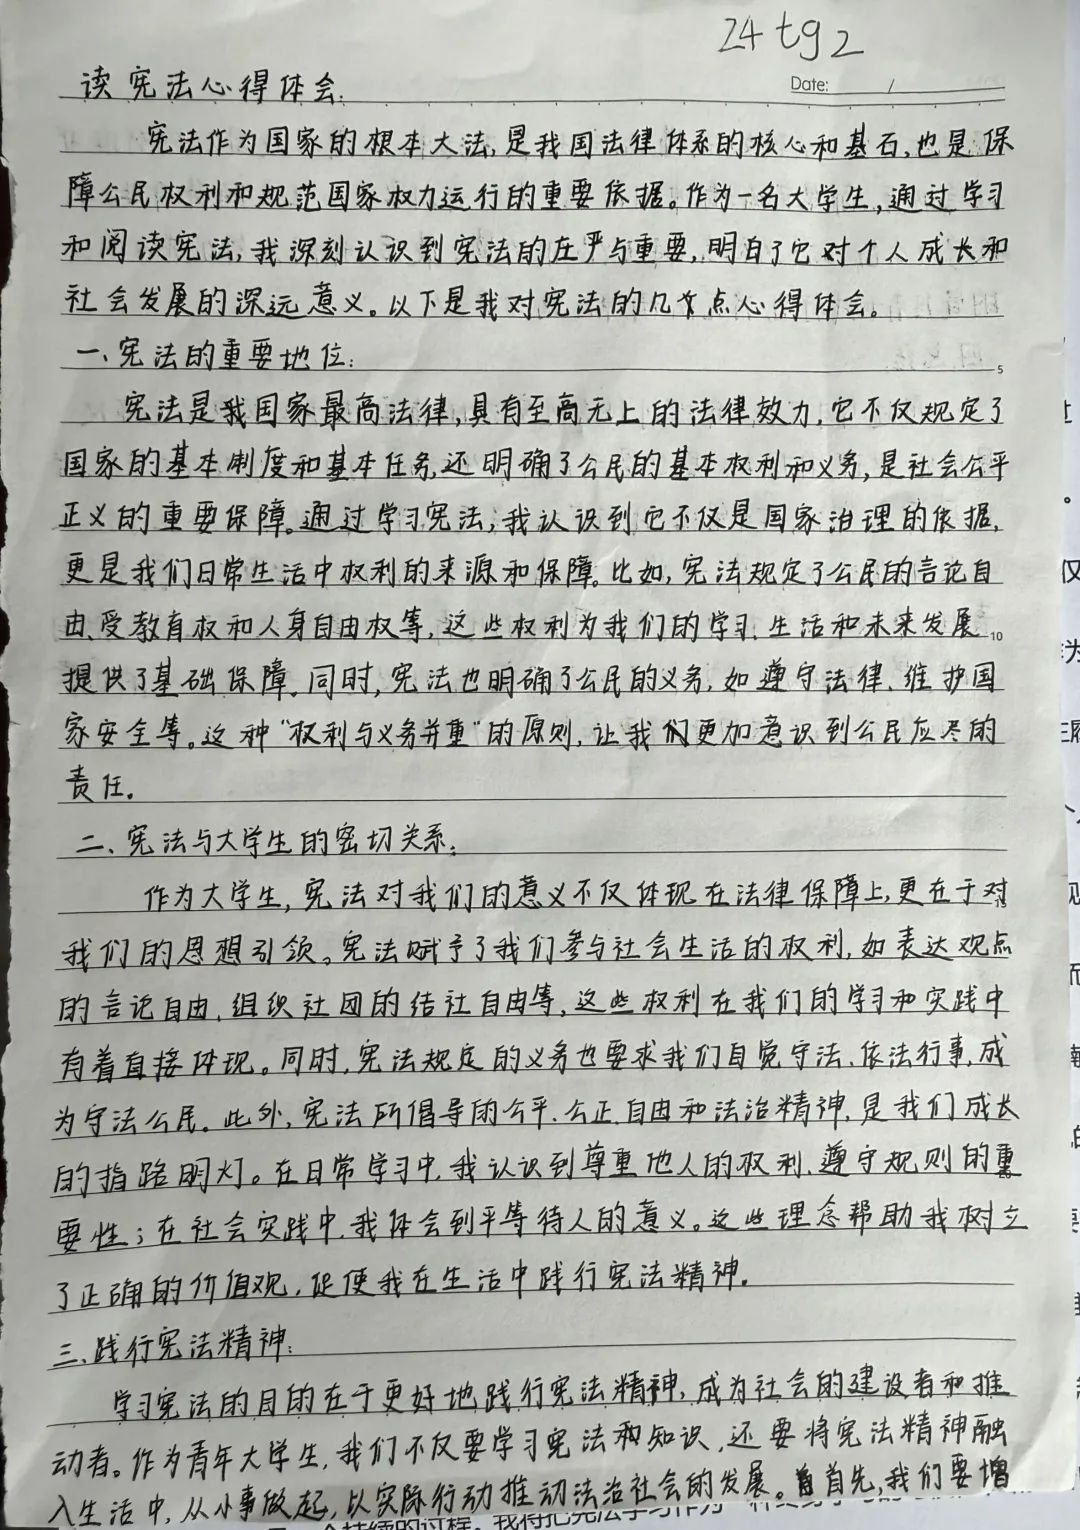 24 tg 2
Date: /
读宪法心得体会:
宪法作为国家的根本大法,是我国法律体系的核心和基石,也是保
障公民权利和规范国家权力运行的重要依据。作为一名大学生,通过学习
和阅读宪法,我深刻认识到宪法的庄严与重要,明白了它对个人成长和
社会发展的深远意义。以下是我对宪法的几点心得体会。
一、宪法的重要地位:
5
宪法是我国国家最高法律,具有至高无上的法律效力,它不仅规定了
国家的基本制度和基本任务,还明确了公民的基本权利和义务,是社会公平
正义的重要保障。通过学习宪法,我认识到它不仅是国家治理的依据,
更是我们日常生活中权利的来源和保障。比如,宪法规定了公民的言论自
由、受教育权和人身自由权等,这些权利为我们的学习、生活和未来发展
10
提供了基础保障。同时,宪法也明确了公民的义务,如遵守法律、维护国
家安全等。这种“权利与义务并重”的原则,让我们更加意识到公民应尽的
责任。
二、宪法与大学生的密切关系:
作为大学生,宪法对我们的意义不仅体现在法律保障上,更在于对
我们的思想引领。宪法赋予了我们参与社会生活的权利,如表达观点
的言论自由、组织社团的结社自由等,这些权利在我们的学习和实践中
有着直接体现。同时,宪法规定的义务也要求我们自觉守法、依法行事,成
为守法公民。此外,宪法所倡导的公平、公正、自由和法治精神,是我们成长
的指路明灯。在日常学习中,我认识到尊重他人的权利、遵守规则的重
要性;在社会实践中,我体会到平等待人的意义。这些理念帮助我树立
了正确的价值观,促使我在生活中践行宪法精神。
三、践行宪法精神:
学习宪法的目的在于更好地践行宪法精神,成为社会的建设者和推
动者。作为青年大学生,我们不仅要学习宪法和知识,还要将宪法精神融
入生活中,从小事做起,以实际行动推动法治社会的发展。首先,我们要增